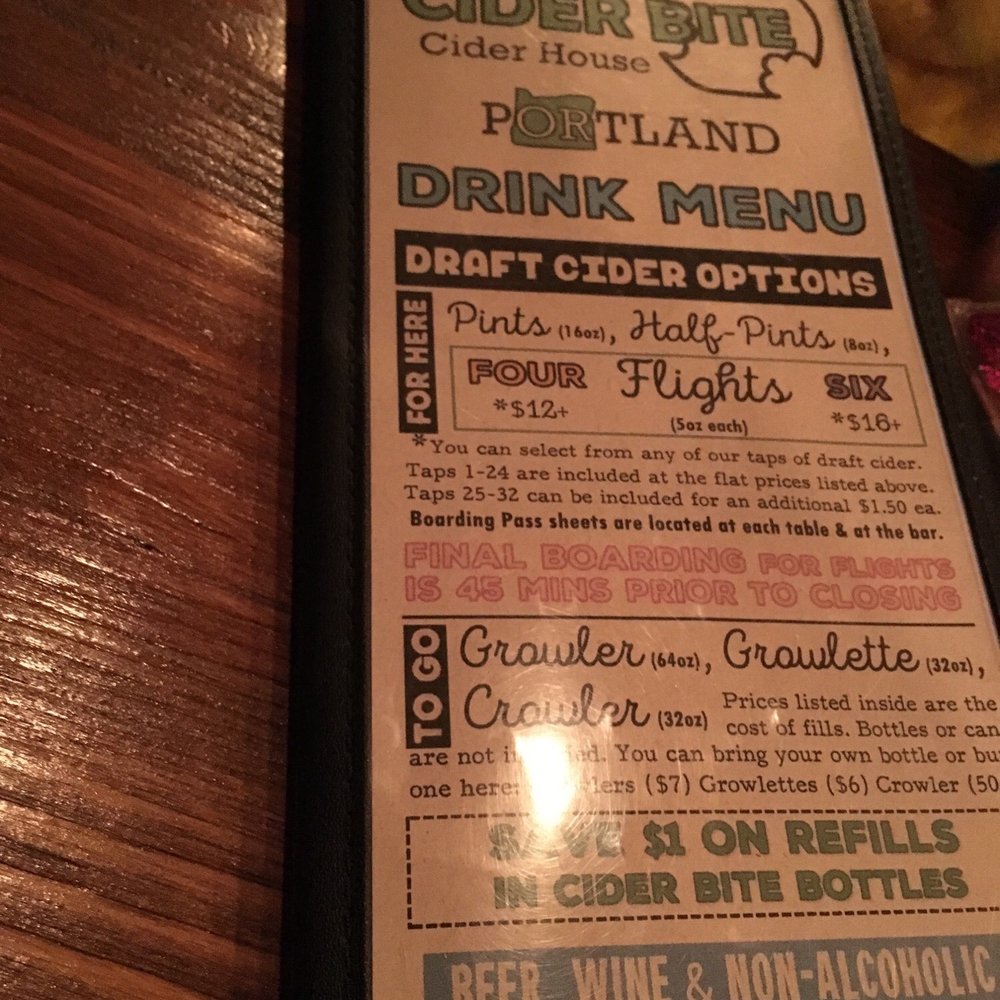 CIDER BITE
Cider House
PORTLAND
DRINK MENU
DRAFT CIDER OPTIONS
FOR HERE
Pints (16oz), Half-Pints (8oz),
FOUR Flights SIX
*$12+ (5oz each) *$16+
*You can select from any of our taps of draft cider.
Taps 1-24 are included at the flat prices listed above.
Taps 25-32 can be included for an additional $1.50 ea.
Boarding Pass sheets are located at each table & at the bar.
FINAL BOARDING FOR FLIGHTS
IS 45 MINS PRIOR TO CLOSING
TO GO
Growler (64oz), Growlette (32oz),
Crowler (32oz) Prices listed inside are the
cost of fills. Bottles or can
are not . You can bring your own bottle or bu
one here: ($7) Growlettes ($6) Crowler (50
SAVE $1 ON REFILLS
IN CIDER BITE BOTTLES
BEER, WINE & NON-ALCOHOLIC